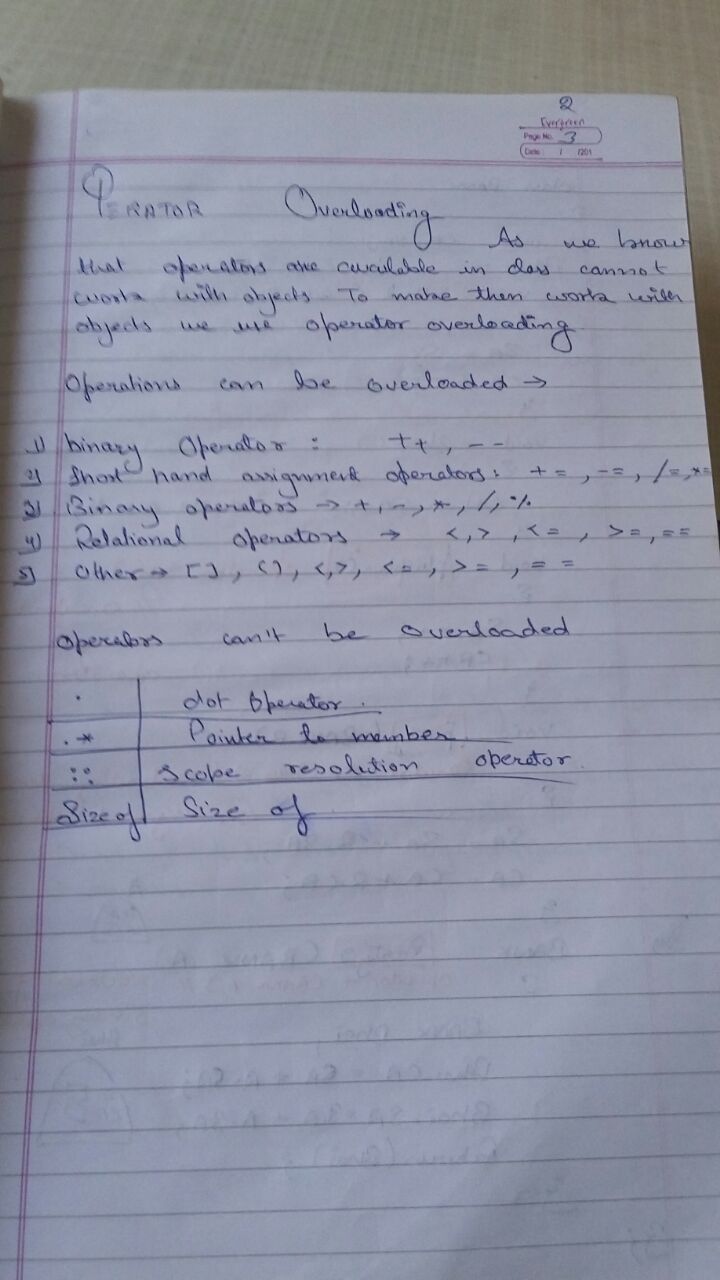 2
Evergreen
Page No. 3
Date: / /201
OPERATOR Overloading
As we know
that operators are available in class cannot
work with objects To make then work with
objects we use operator overloading
Operations can be overloaded →
1) binary Operator : ++, --
2) Short hand assignment operators: +=, -=, /=, *=
3) Binary operators → +, -, *, /, %
4) Relational operators → <, >, <=, >=, ==
5) Other → [], (), <, >, <=, >=, ==
Operators can't be overloaded
. dot operator.
.* Pointer to member
:: Scope resolution operator
Size of Size of